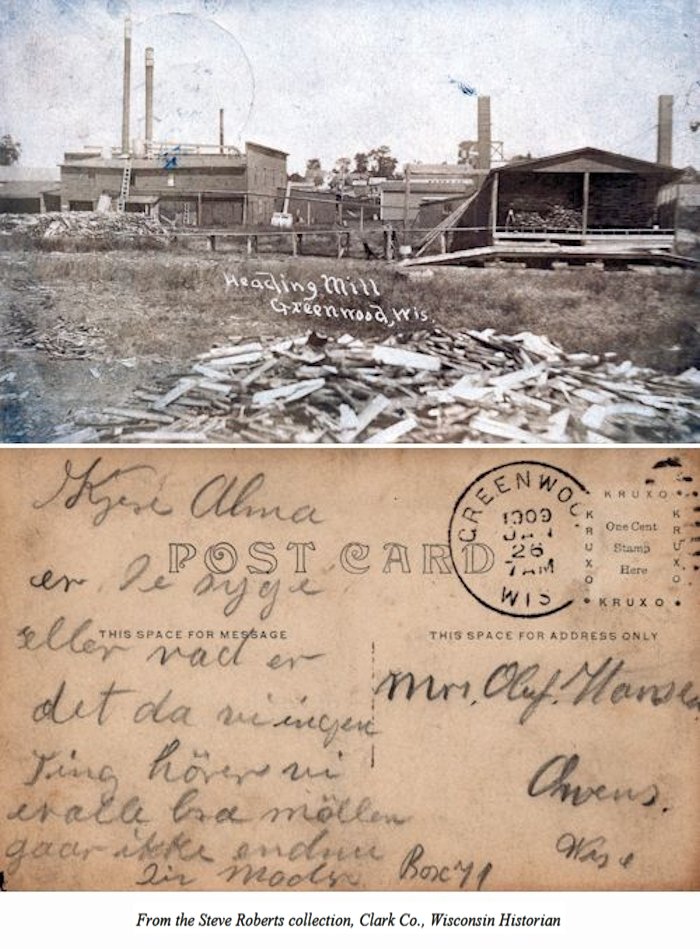 Heading Mill
Greenwood, Wis.
Kjere Alma
er De syge
eller vad er
det da vi ingen
Ting hörer vi
er alle bra möllen
gaar ikke endnu
Din Moder
POST CARD
THIS SPACE FOR MESSAGE
THIS SPACE FOR ADDRESS ONLY
GREENWOO
1909
JAN
26
7 AM
WIS
KRUXO
KRUXO
One Cent
Stamp
Here
KRUXO
KRUXO
Mrs. Oluf. Hansen
Owens.
Wis
Box 71
From the Steve Roberts collection, Clark Co., Wisconsin Historian